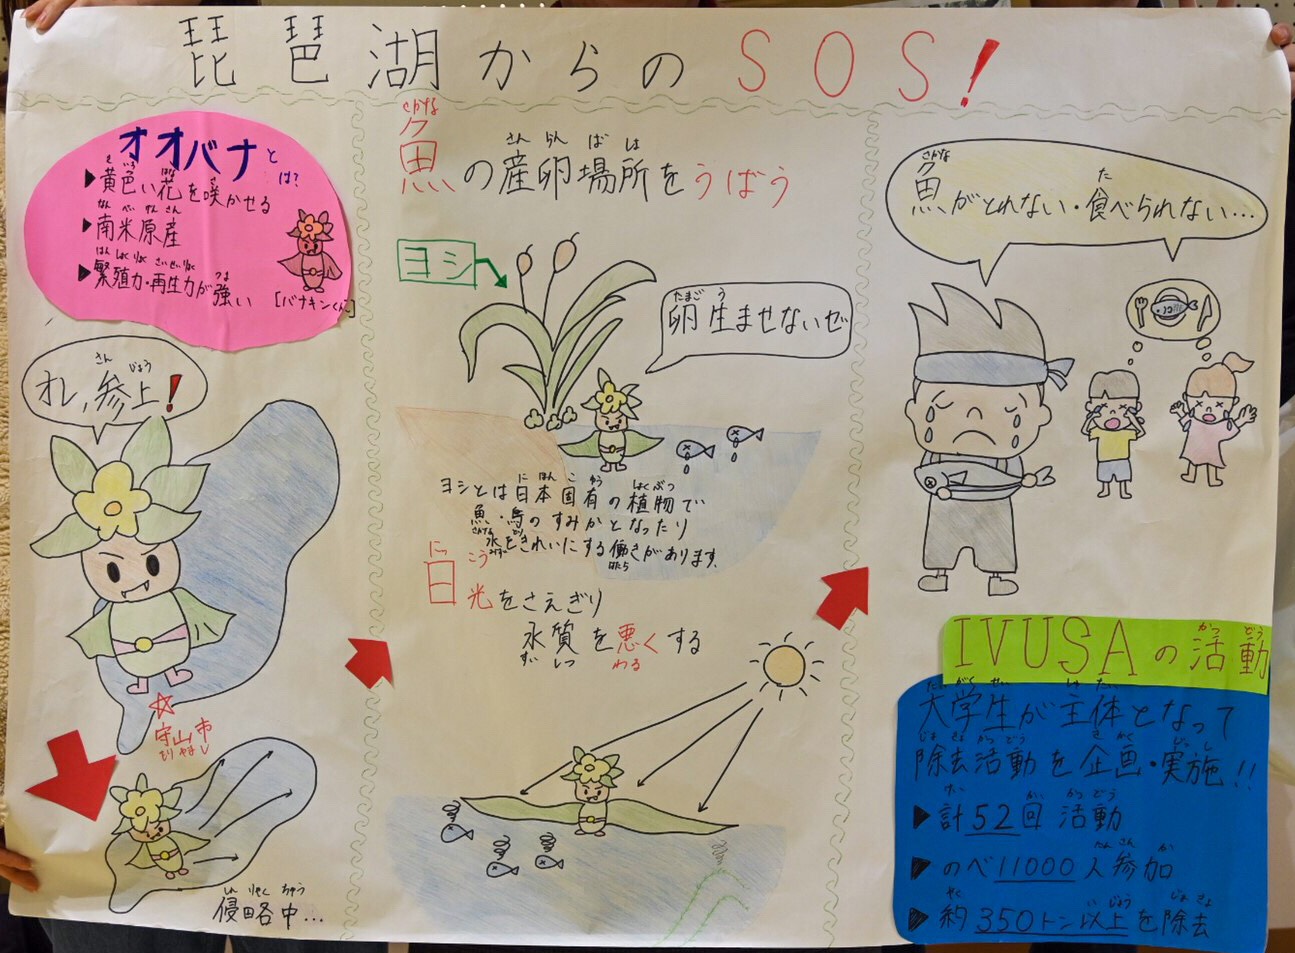 琵琶湖からのSOS!
オオバナとは?
▶黄色い花を咲かせる
▶南米原産
▶繁殖力・再生力が強い
[バナキンくん]
オレ、参上!
守山市
侵略中...
魚の産卵場所をうばう
ヨシ
卵生ませないぜ
ヨシとは日本固有の植物で
魚・鳥のすみかとなったり
水をきれいにする働きがあります。
日光をさえぎり
水質を悪くする
魚がとれない・食べられない...
IVUSAの活動
大学生が主体となって
除去活動を企画・実施!!
▶計52回活動
▶のべ11000人参加
▶約350トン以上を除去